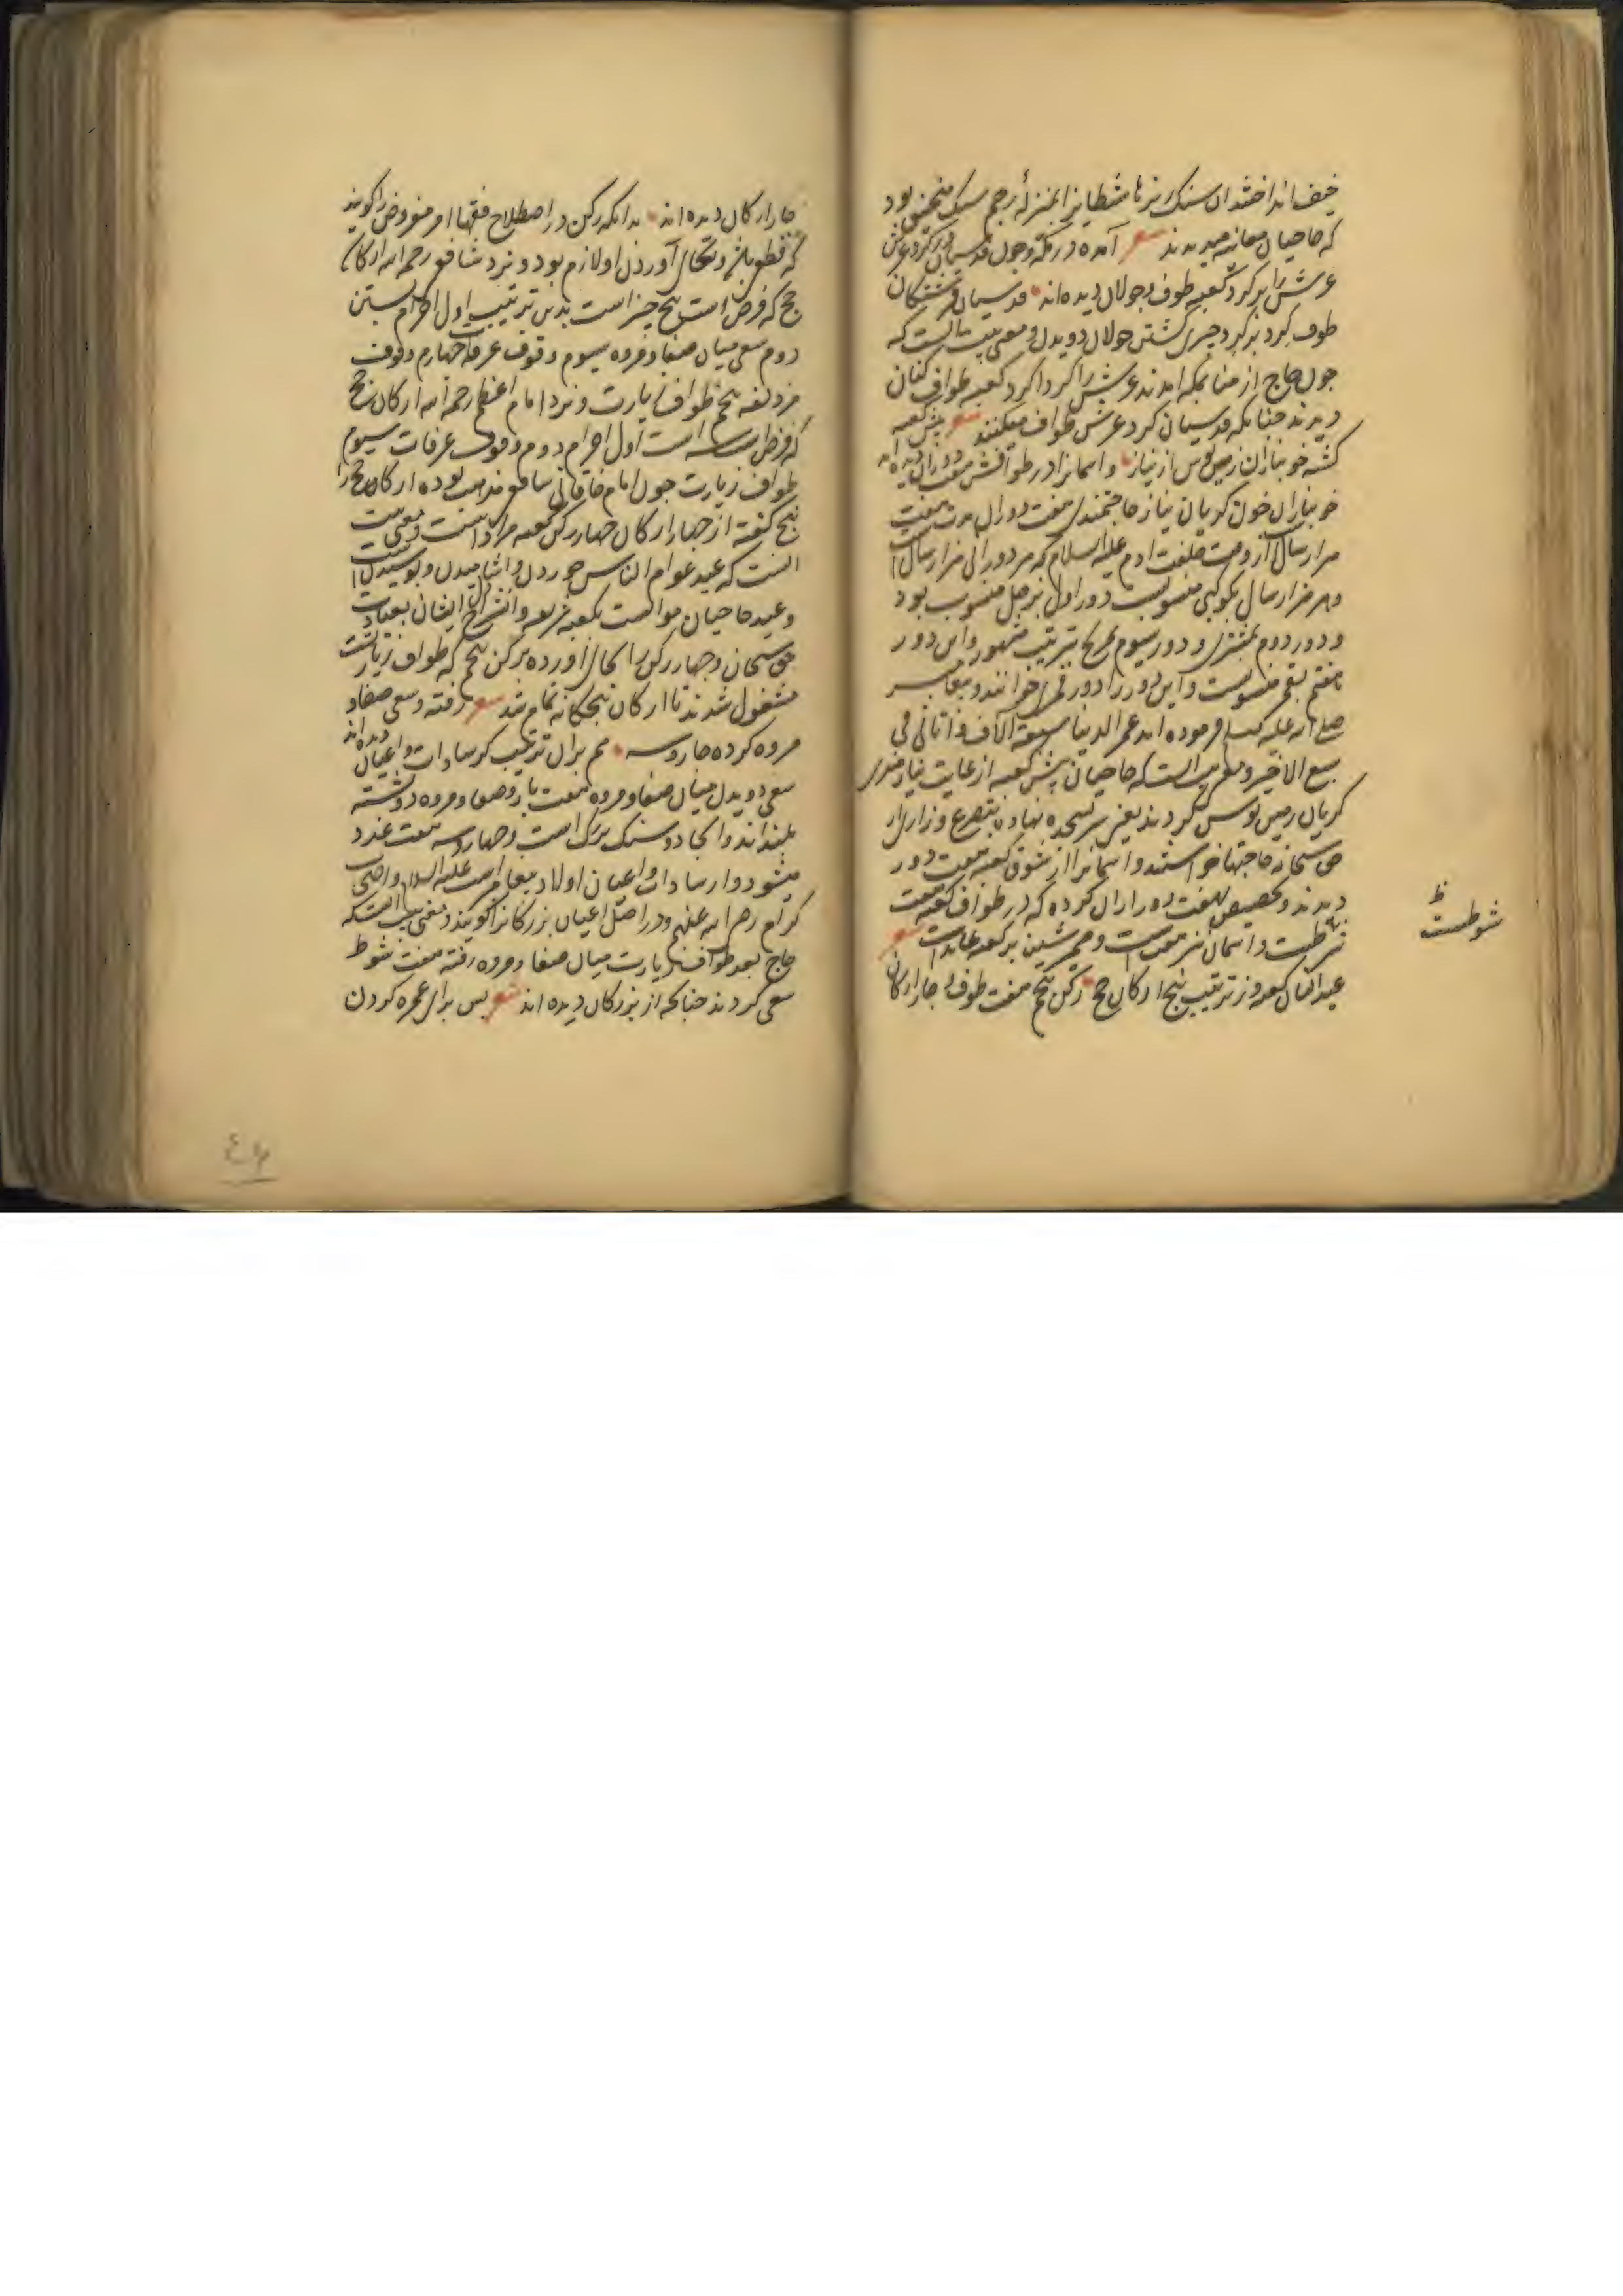 خیف انداختند آن سنک ریزها شیطانرا بمنزلهٔ رجم سنک منجنیق بود
که حاجیان معاینه میدیدند شعر آمده در مکه و چون قدسیان بر کرد عرش
عرش را بر کرد کعبه طوف و جولان دیده‌اند قدسیان فرشتکان
طوف کرد بر کرد چیزی کشتن جولان دویدن و معنی بیت آنست که
چون حاج از منا بمکه آمدند عرش را کرداکرد کعبه طواف کنان
دیدند چنانکه قدسیان کرد عرش طواف میکنند شعر پیش کعبه
کشته خونباران زمین بوس از نیاز و آسمانرا در طوافش هفت دوران دیده‌اند
خونباران خون کریان نیاز حاجتمندی هفت دوران مدت هفت
هزار سال از وقت خلقت آدم علیه السلام که هر دورانی هزار سال است
و هر هزار سال بکوکبی منسوبست دور اول بزحل منسوب بود
و دور دوم بمشتری و دور سیوم بمریخ بترتیب مشهور و این دور
هفتم بقمر منسوبست و این دور را دور قمری خوانند و پیغامبر
صلی الله علیه وسلم فرموده‌اند عمر الدنیا سبعة آلاف و انا فی
سبع الاخیر و معنی بیت آنست که حاجیان پیش کعبه از غایت نیازمندی
کریان زمین بوس کردند یعنی سر بسجده نهادند بتضرع و زاری از
حق سبحانه حاجتها خواستند و آسمانرا از شوق کعبه هفت دور
دیدند و تخصیص هفت دور از آن کرده که در طواف کعبه هفت
شرطست و آسمان نیز هفت است و ضمیر شین بر کعبه عایدست شعر
عید ایشان کعبه وز ترتیب پنج ارکان حج رکن پنجم هفت طوف چار ارکان
ظ
شوطست
چار ارکان دیده‌اند بدانکه رکن در اصطلاح فقها امر مفروض را کویند
که قطعی باشد و بجای آوردن او لازم بود و نزد شافعی رحمه الله ارکان
حج که فرض است پنج چیز است بدین ترتیب اول احرام بستن
دوم سعی میان صفا و مروه سیوم وقوف عرفه چهارم وقوف
مزدلفه پنجم طواف زیارت و نزد امام اعظم رحمه الله ارکان حج
که فرض است سه است اول احرام دوم وقوف عرفات سیوم
طواف زیارت چون امام خاقانی شافعی مذهب بوده ارکان حج را
پنج کفته از چهار ارکان چهار رکن کعبه مراد است و معنی بیت
آنست که عید عوام الناس خوردن و آشامیدن و پوشیدن است
و عید حاجیان موافقت بکعبه شریفه و انشراح ایشان بعبادت
حق سبحانه و چهار رکن را بجای آورده برکن پنجم که طواف زیارتست
مشغول شدند تا ارکان پنجکانه تمام شد شعر رفته و سعی صفا و
مروه کرده چار و سه هم بران ترتیب کز سادات و اعیان دیده‌اند
سعی دویدن میان صفا و مروه هفت بار و صفا و مروه دو پشته
بلنداند و آنجا دو سنک بزرک است و چهار و سه هفت عدد
میشود و از سادات و اعیان اولاد پیغامبر است علیه السلام و اصحاب
کرام رضی الله عنهم و در اصل اعیان بزرکانرا کویند و معنی بیت آنست که
حاج بعد طواف زیارت میان صفا و مروه رفته هفت شوط
سعی کردند چنانکه از بزرکان دیده‌اند شعر پس برای عمره کردن